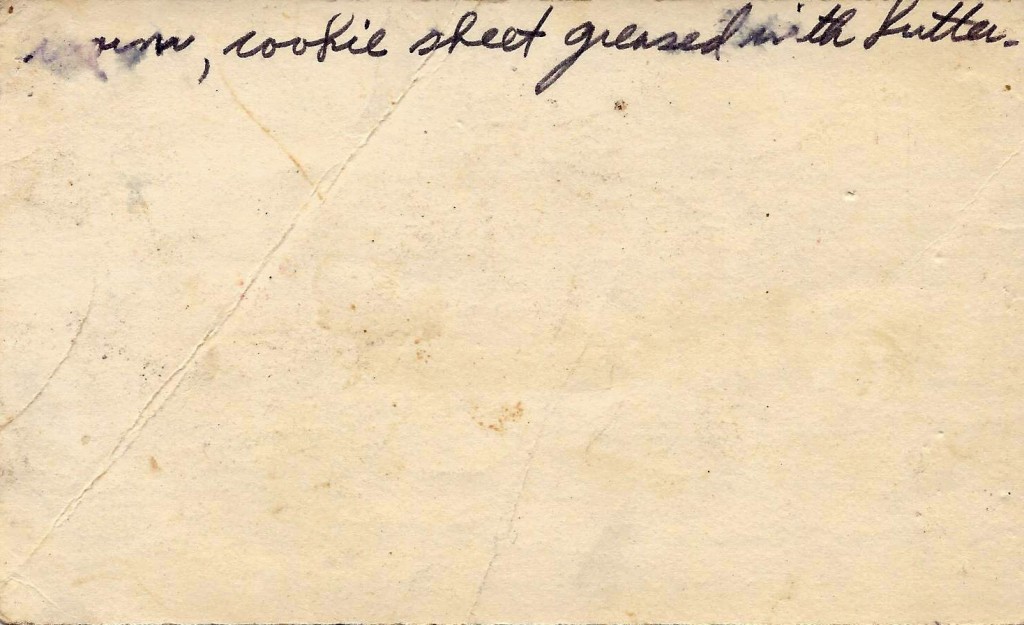 , cookie sheet greased with butter.